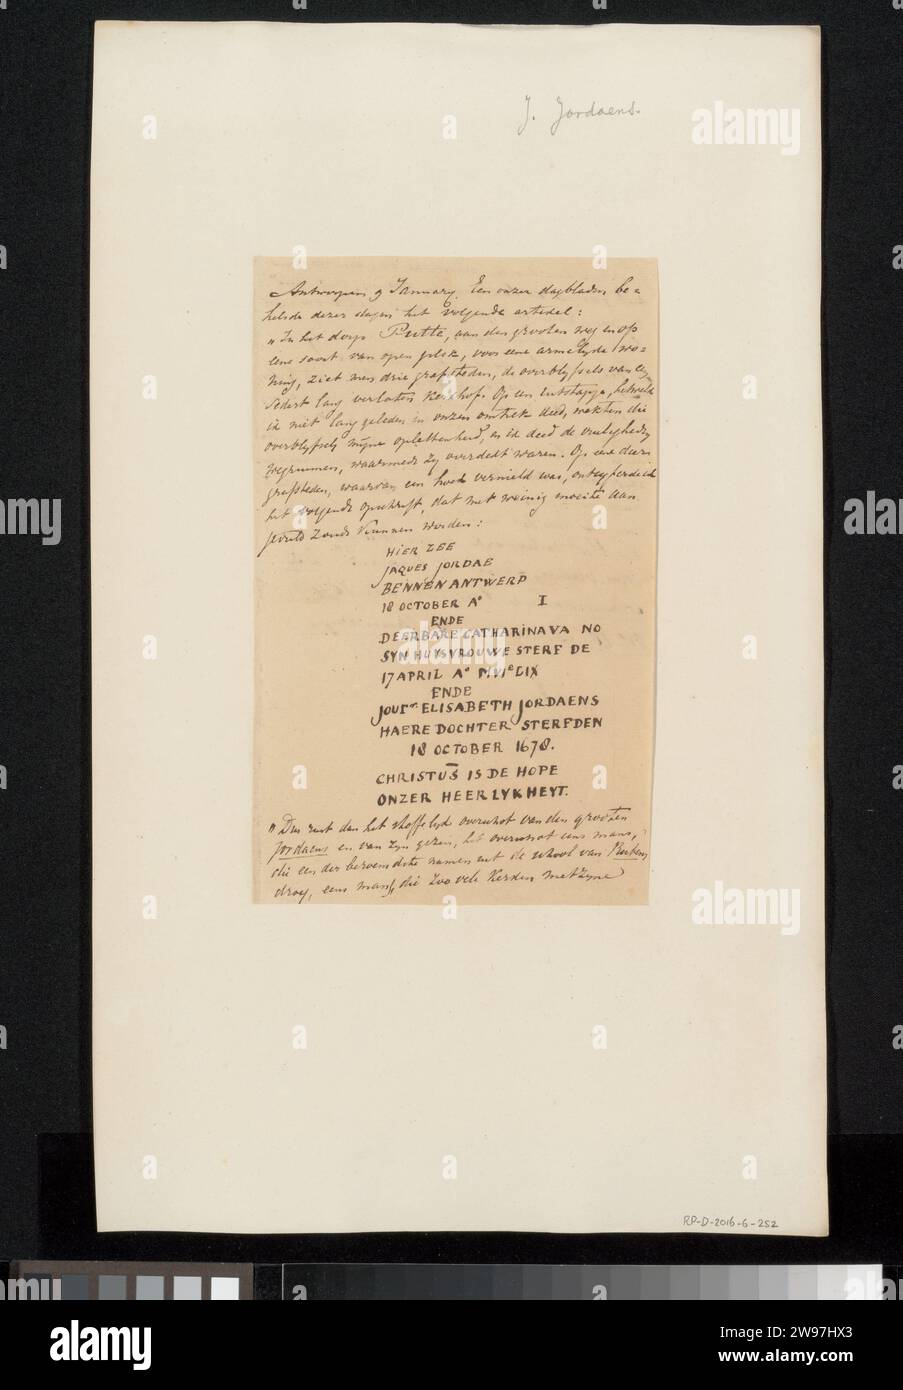 J. Jordaens.
Antwerpen 9 January. Een onzer dagbladen be=
helsde dezer dagen het volgende artikel:
"In het dorp Putte, aan den grooten weg en op
eene soort van open plek, voor eene armelyke wo=
ning, ziet men drie grafsteden, de overblyfsels van een
sedert lang verlaten Kerkhof. Op een uitstapje, hetwelk
ik niet lang geleden in onzen omtrek deed, wekten die
overblyfsels myne oplettenheid, en ik deed de vuiligheden
wegnemen, waarmede zy overdekt waren. Op eene dezer
grafsteden, waarvan een hoek vernield was, ontcyferde ik
het volgende opschrift, dat met weinig moeite aan
gevuld zoude kunnen worden:
HIER LEE
JAQUES JORDAE
BENNEN ANTWERP
18 OCTOBER Aº I
ENDE
DEERBARE CATHARINA VA NO
SYN HUYSVROUWE STERF DE
17 APRIL Aº MVIeLIX
ENDE
JOUr. ELISABETH JORDAENS
HAERE DOCHTER STERF DEN
18 OCTOBER 1678.
CHRISTUS IS DE HOPE
ONZER HEERLYKHEYT.
"Dus rust dan het stoffelyk overschot van den grooten
Jordaens en van zyn gezin, het overschot eens mans,
die een der beroemdste namen uit de school van Rubens
droeg, eens mans, die zoo vele Kerken met zyne
RP-D-2016-6-252
a alamy
alamy
Image ID: 2W97HX3
www.alamy.com